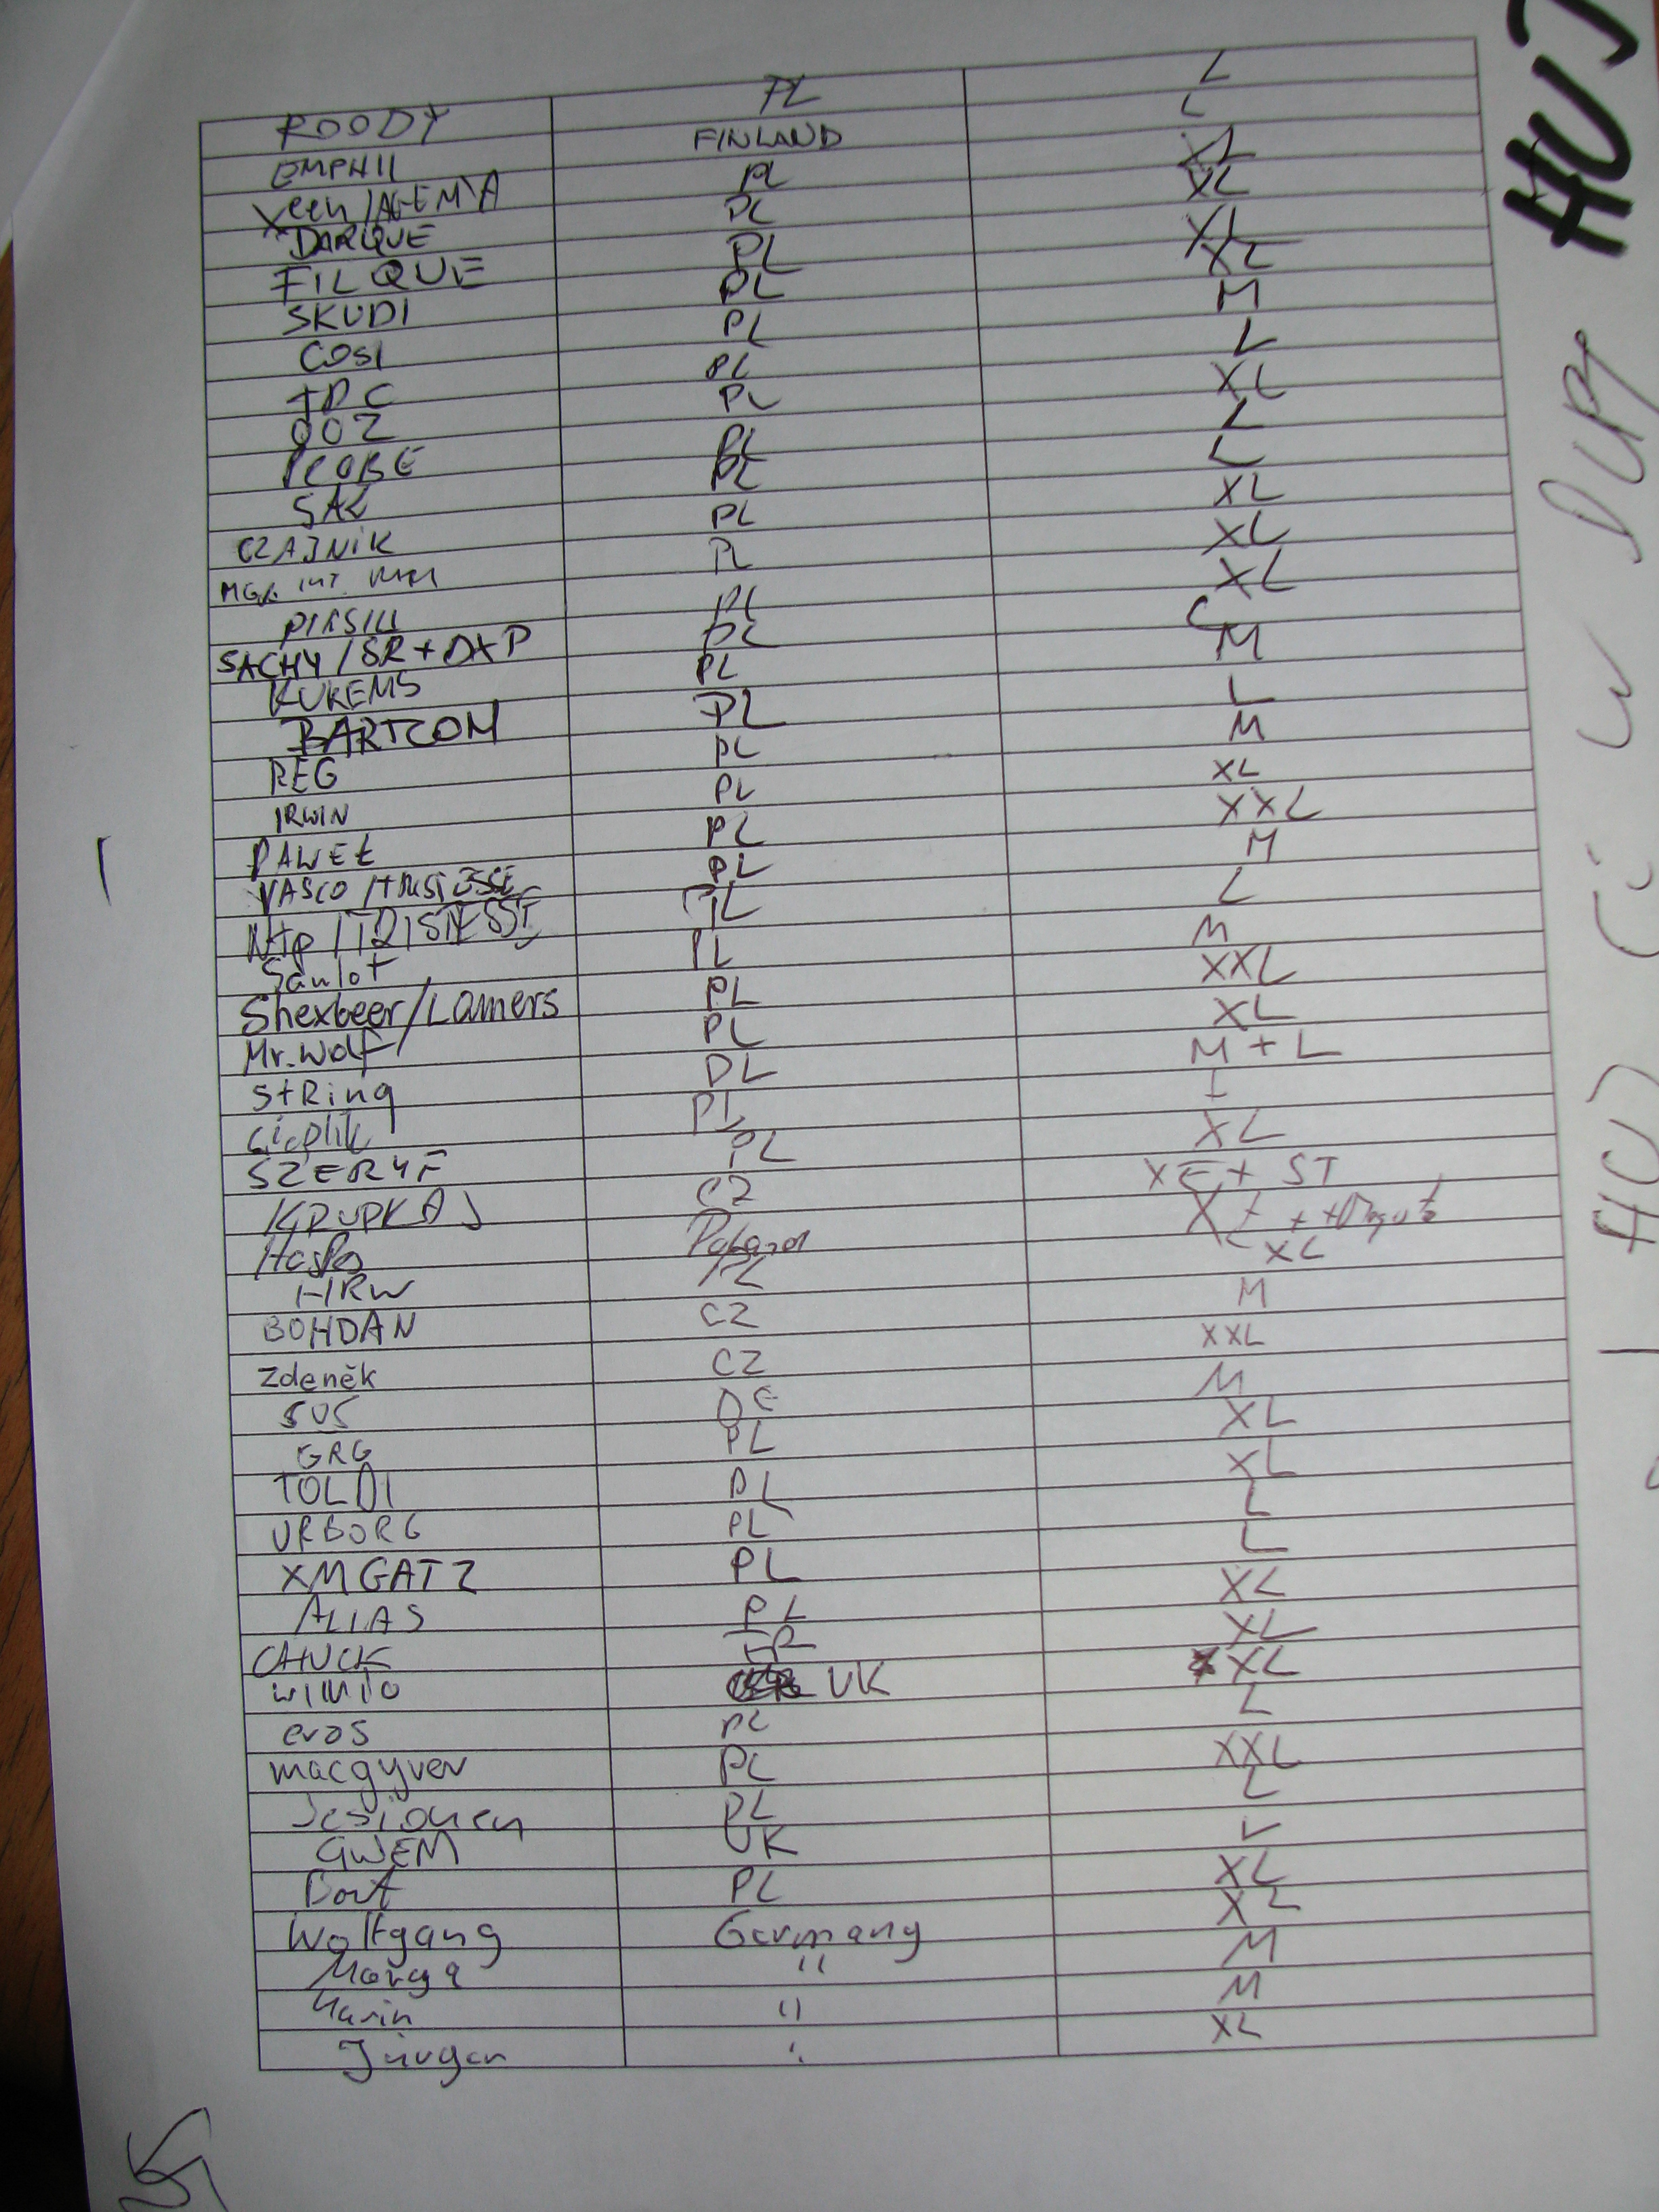 ROODY PL L
EMPHII FINLAND L
Xeen/AGEMA PL XL
DARQUE PL XL
FILQUE PL XL
SKUDI PL XL
COSI PL M
TDC PL L
OOZ PL XL
PROBE PL L
SAL PL L
CZAJNIK PL XL
MGR INŻ. PL XL
PIASIU PL XL
SACHY/SR+DXP PL L
KUKEMS PL M
BARTCOM PL L
REG PL M
IRWIN PL XL
PAWEŁ PL XXL
VASCO/TRISTESSE PL M
Ntp/TRISTESSE PL L
Saulot PL M
Shexbeer/Lamers PL XXL
Mr.Wolf PL XL
StRing PL M + L
PL L
SZERYF PL XL
KRUPKAJ CZ XL + ST
Hospes Poland XL +
HRW PL XL
BOHDAN CZ M
Zdeněk CZ XXL
505 DE M
GRG PL XL
TOLDI PL XL
URBORG PL L
XMGATZ PL L
ALIAS PL XL
CHUCK FR XL
UK XL
eros PL L
macgyver PL XXL
Jesionen PL L
GWEM UK L
Bart PL XL
Wolfgang Germany XL
Marga " M
Karin " M
Jürgen " XL
HUJ
HUJ Ci w DUPĘ